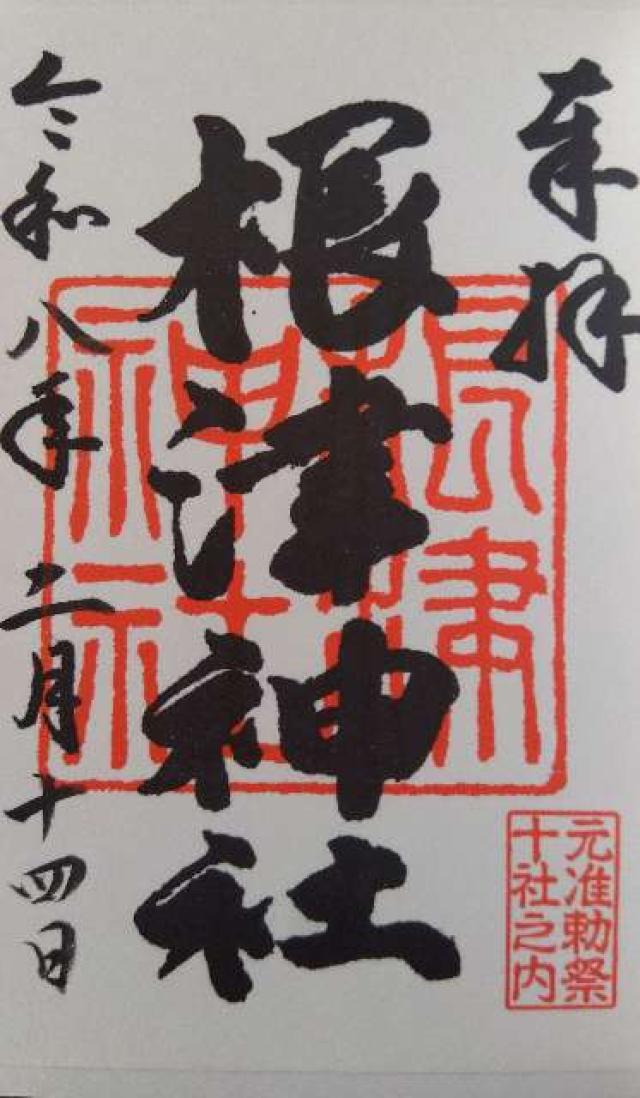 奉拝
根津神社
令和八年二月十四日
根津
神社
元准勅祭
十社之内